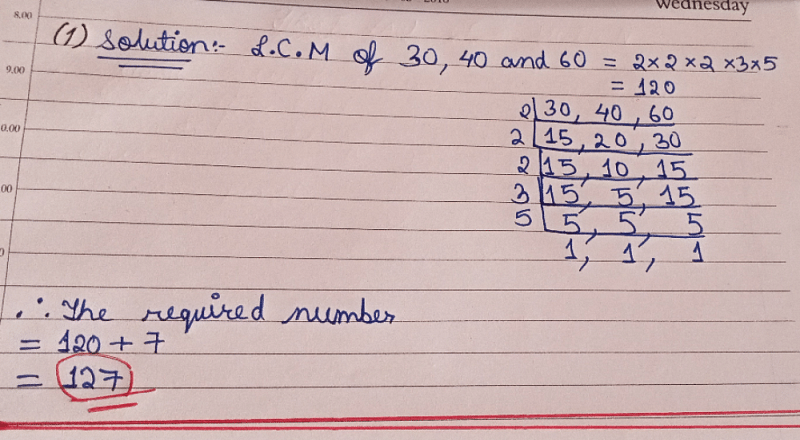 Wednesday
8.00
(1) Solution:- L.C.M of 30, 40 and 60 = 2×2×2×3×5
9.00
= 120
2 30, 40, 60
2 15, 20, 30
2 15, 10, 15
3 15, 5, 15
5 5, 5, 5
1, 1, 1
∴ The required number
= 120 + 7
= 127